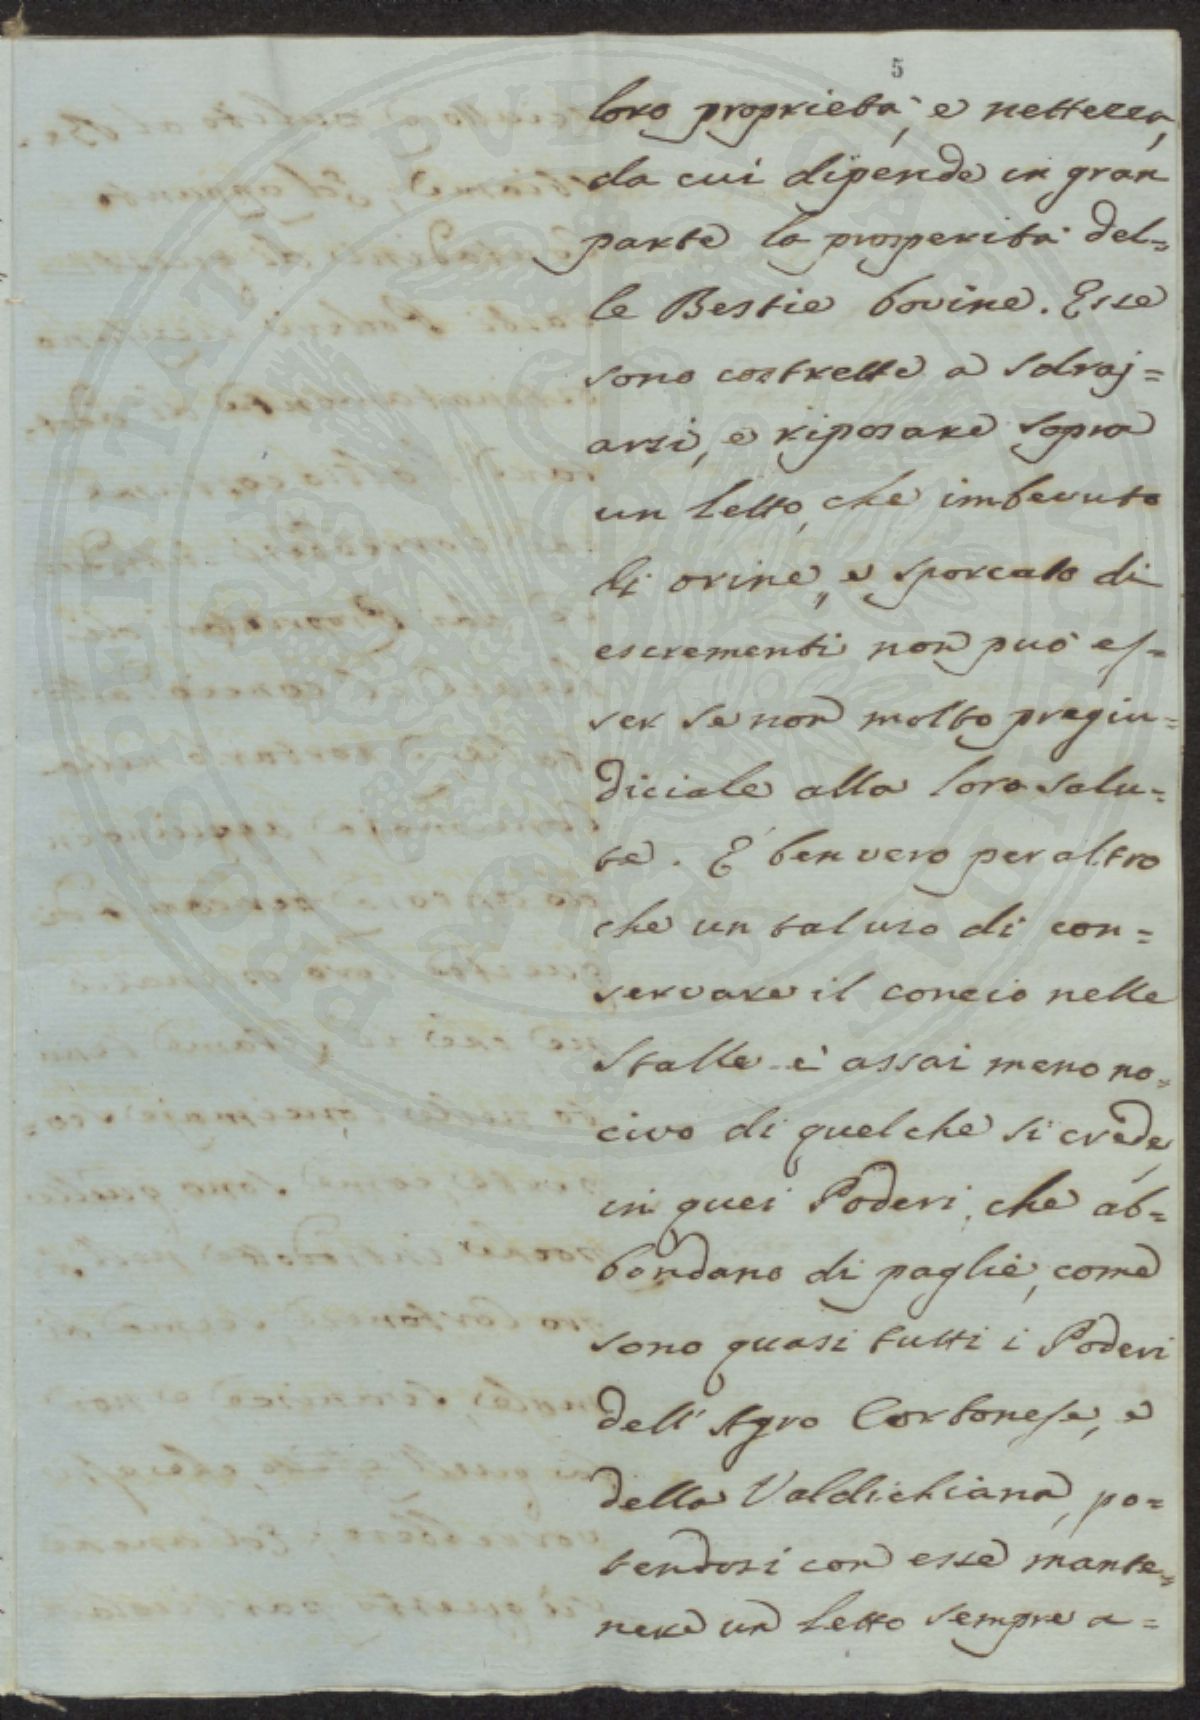 5
loro proprietà, e nettezza,
da cui dipende in gran
parte la prosperità del=
le Bestie bovine. Esse
sono costrette a sdraj=
arsi, e riposare sopra
un letto, che imbevuto
di orine, e sporcato di
escrementi non può es=
ser se non molto pregiu=
diciale alla loro salu=
te. È ben vero per altro
che un tal uso di con=
servare il concio nelle
Stalle è assai meno no=
civo di quel che si crede,
in quei Poderi, che ab=
bondano di paglie, come
sono quasi tutti i Poderi
dell'Agro Cortonese, e
della Valdichiana, po=
tendosi con esse mante=
nere un letto sempre a=